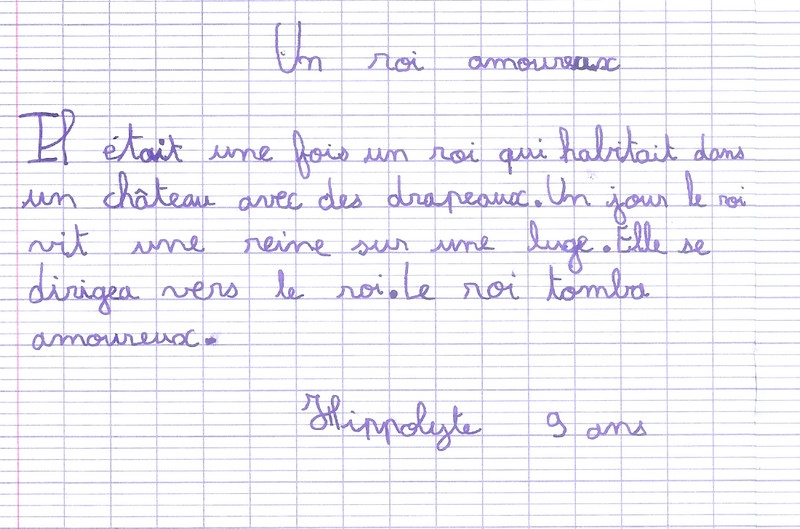 Un roi amoureux
Il était une fois un roi qui habitait dans
un château avec des drapeaux. Un jour le roi
vit une reine sur une luge. Elle se
dirigea vers le roi. Le roi tomba
amoureux.
Hippolyte 9 ans